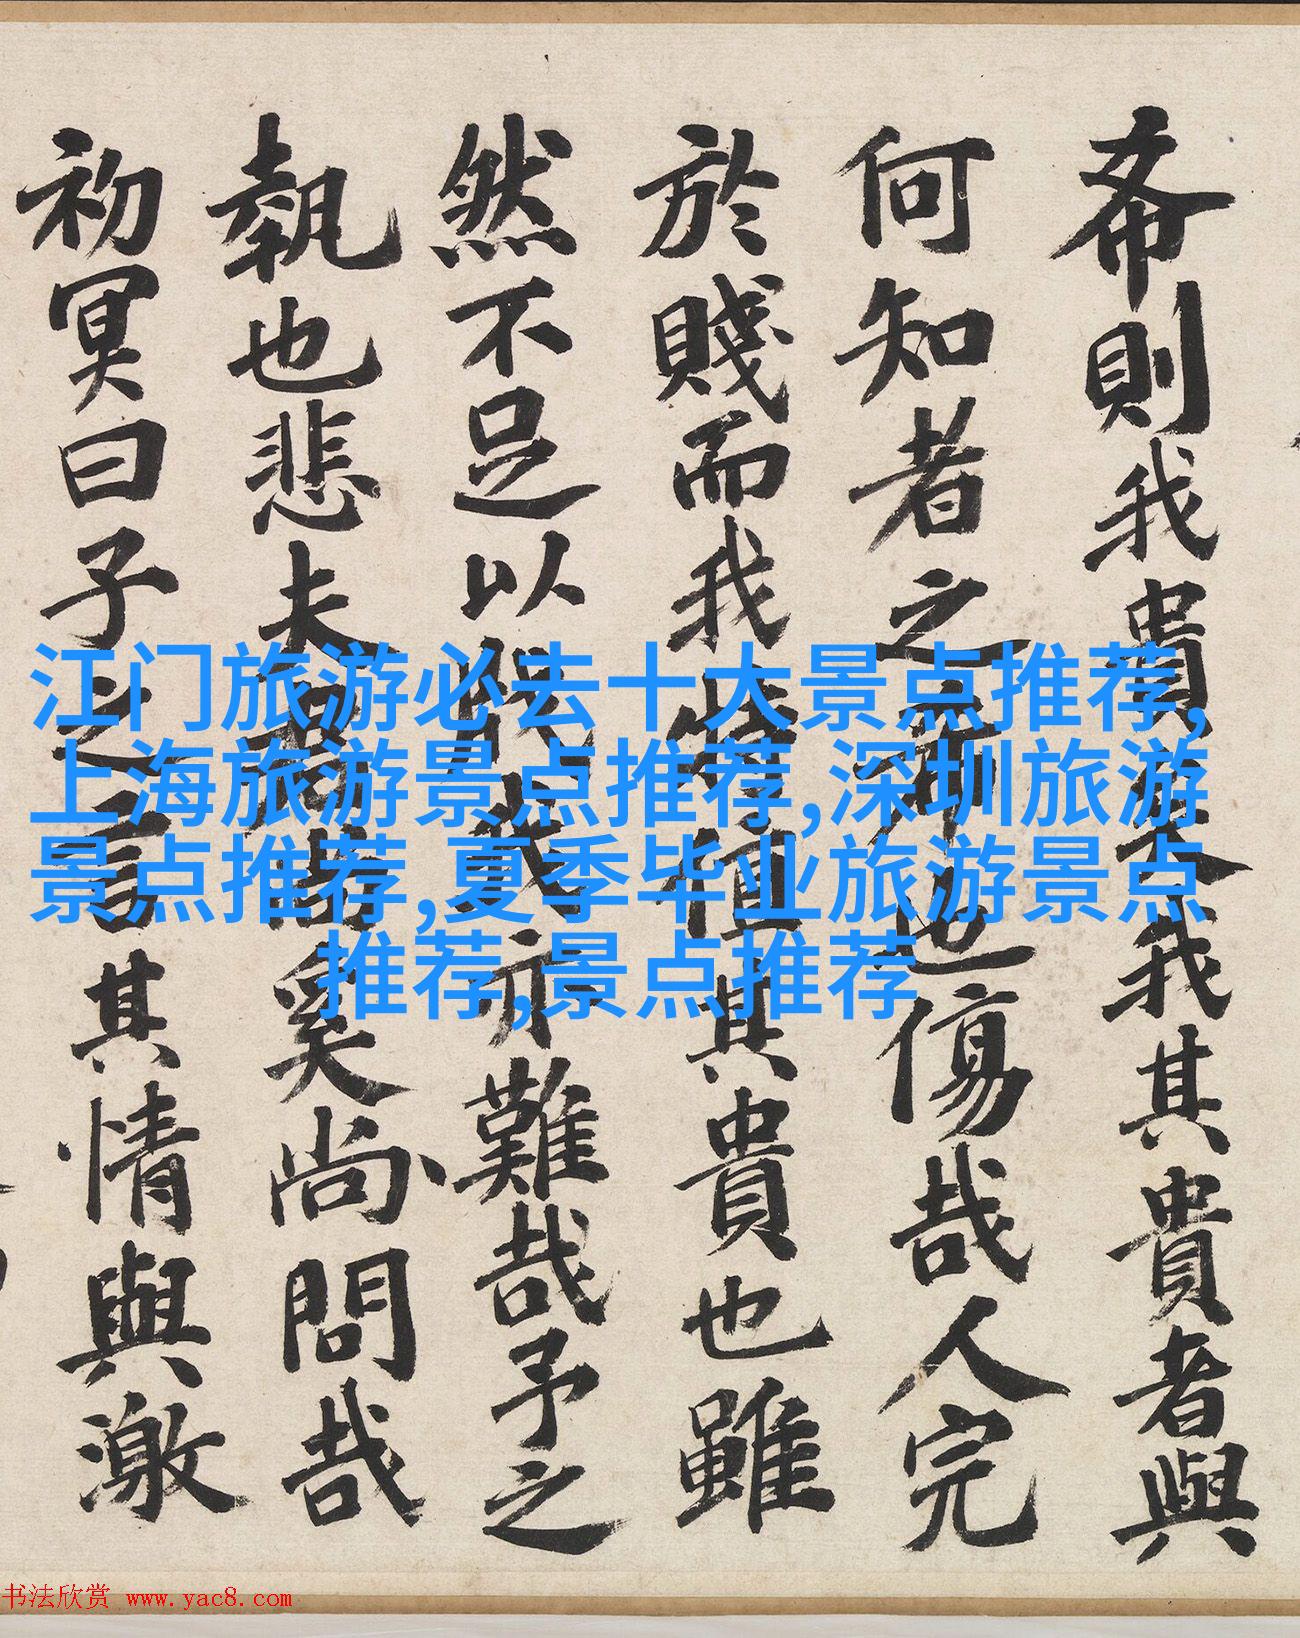 希則我貴矣今我其貴者與
何知者之希也傷哉人完
於賤而我將恒其貴也雖
然不足以我亦難哉予之
執也悲夫奚尚問哉
初冥曰子之言其情與激
江门旅游必去十大景点推荐,
上海旅游景点推荐,深圳旅游
景点推荐,夏季毕业旅游景点
推荐,景点推荐
书法欣赏 www.yac8.com